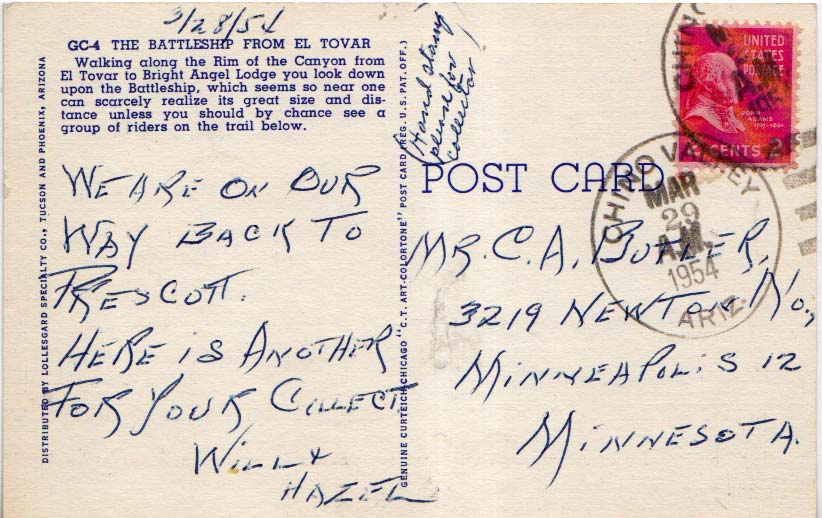 3/28/54
GC-4 THE BATTLESHIP FROM EL TOVAR
Walking along the Rim of the Canyon from
El Tovar to Bright Angel Lodge you look down
upon the Battleship, which seems so near one
can scarcely realize its great size and dis-
tance unless you should by chance see a
group of riders on the trail below.
WE ARE ON OUR
WAY BACK TO
PRESCOTT.
HERE IS ANOTHER
FOR YOUR COLLECT
WILL &
HAZEL
DISTRIBUTED BY LOLLESGARD SPECIALTY CO., TUCSON AND PHOENIX, ARIZONA
GENUINE CURTEICH-CHICAGO "C.T. ART-COLORTONE" POST CARD (REG. U.S. PAT. OFF.)
(Hand stamp
please for
collector)
POST CARD
MR. C. A. BUTLER,
3219 NEWTON NO.,
MINNEAPOLIS 12
MINNESOTA.
UNITED
STATES
POSTAGE
JOHN
ADAMS
1797-1801
2 CENTS 2
CHINO
CHINO VALLEY
MAR
29
A.M.
1954
ARIZ.